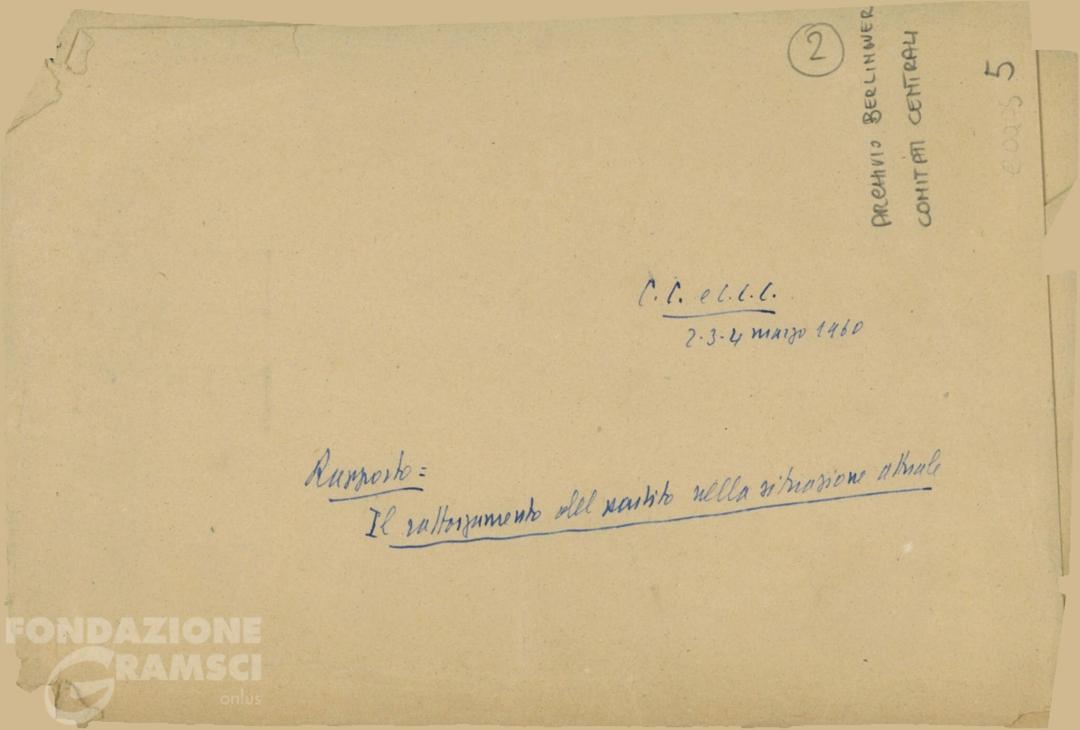 2
ARCHIVIO BERLINGUER
COMITATI CENTRALI
5
C.C. e C.C.C.
2-3-4 marzo 1960
Rapporto=
Il rafforzamento del partito nella situazione attuale
FONDAZIONE
GRAMSCI
onlus